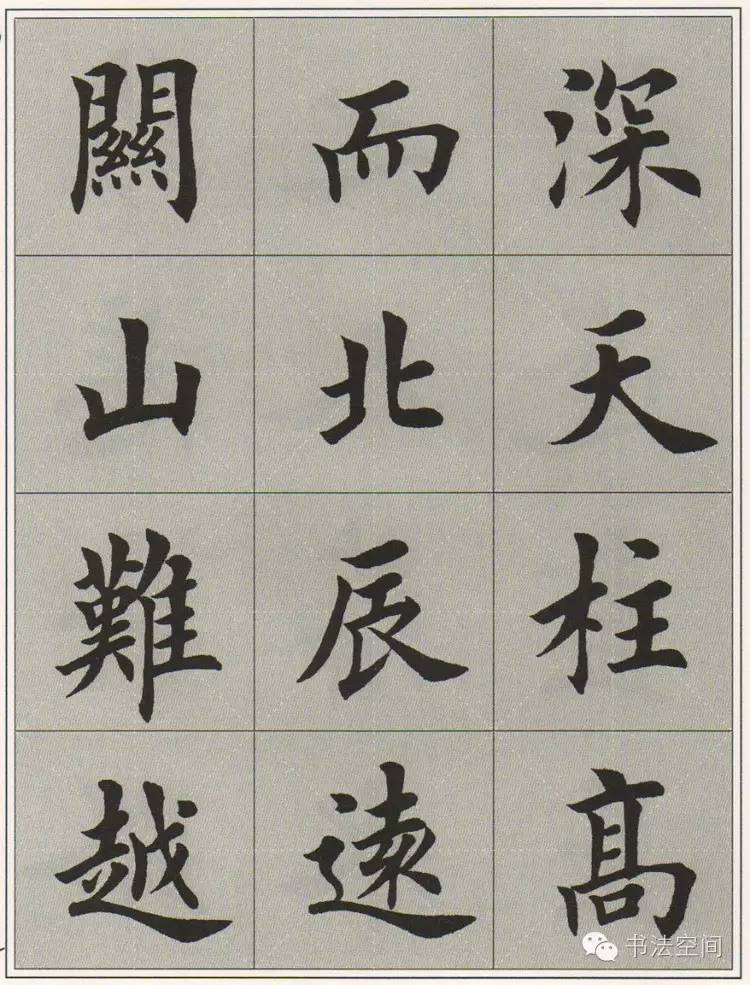 深天柱髙
而北辰遠
關山難越
书法空间